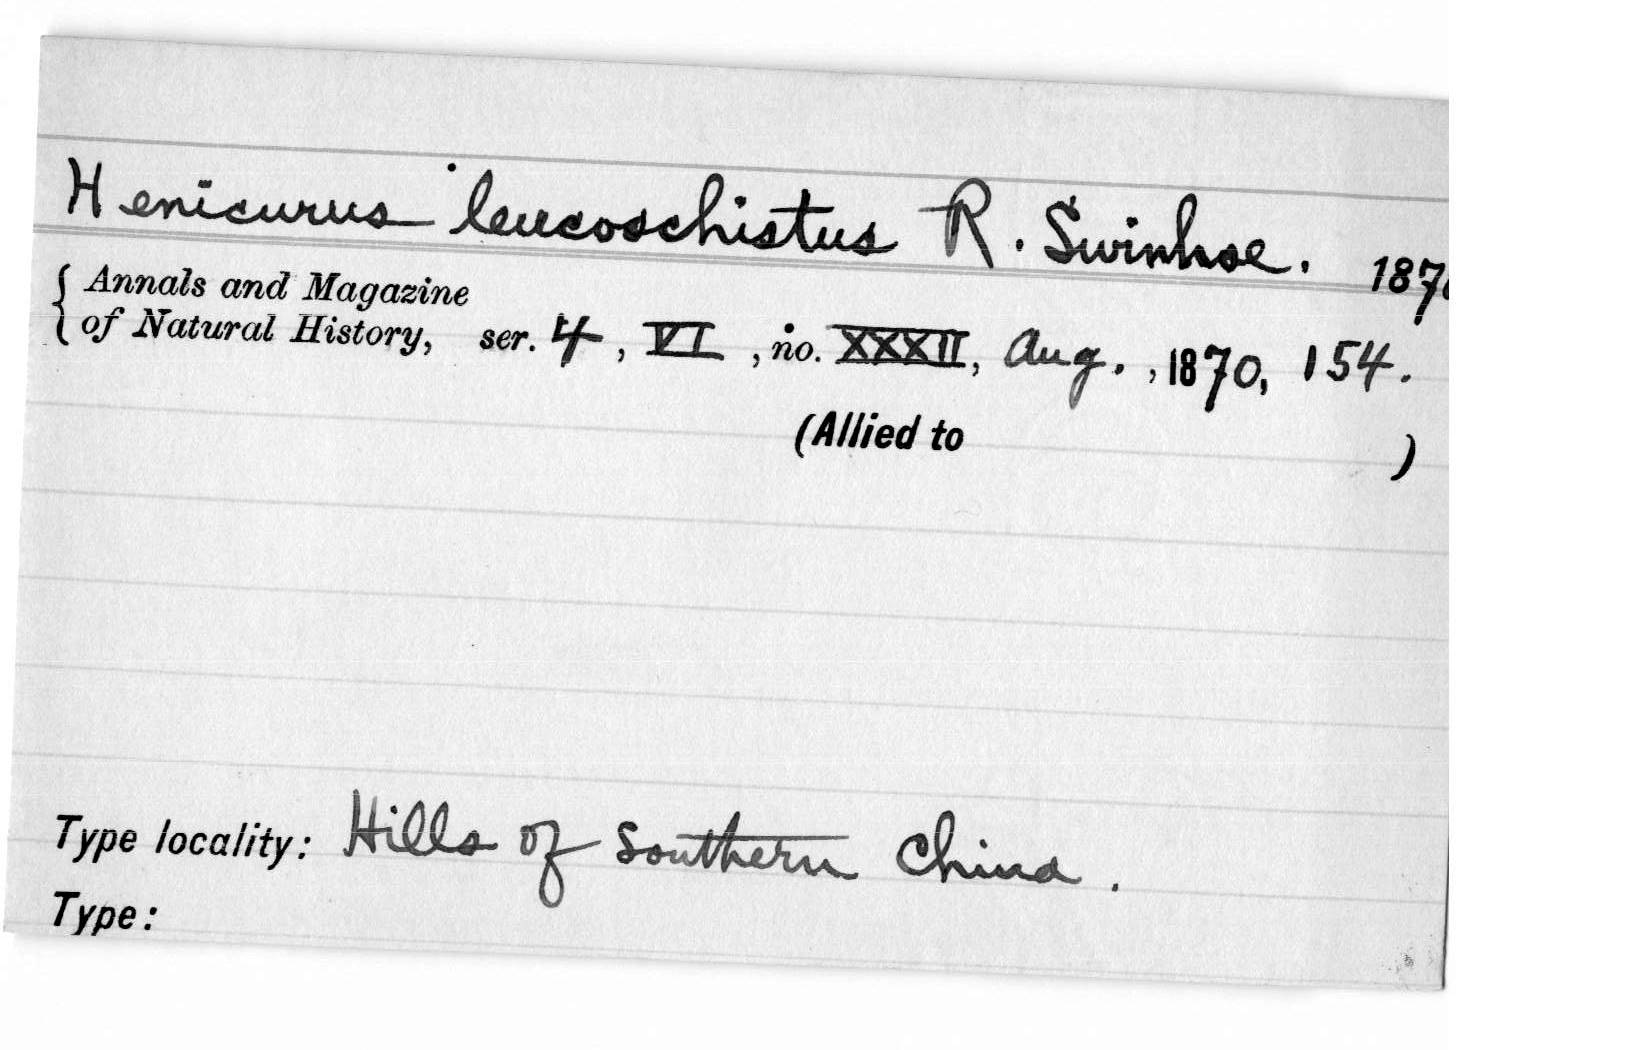 Henicurus leucoschistus R. Swinhoe. 187
{ Annals and Magazine
of Natural History, ser. 4, VI, no. XXXII, Aug., 1870, 154.
(Allied to )
Type locality: Hills of Southern China.
Type: